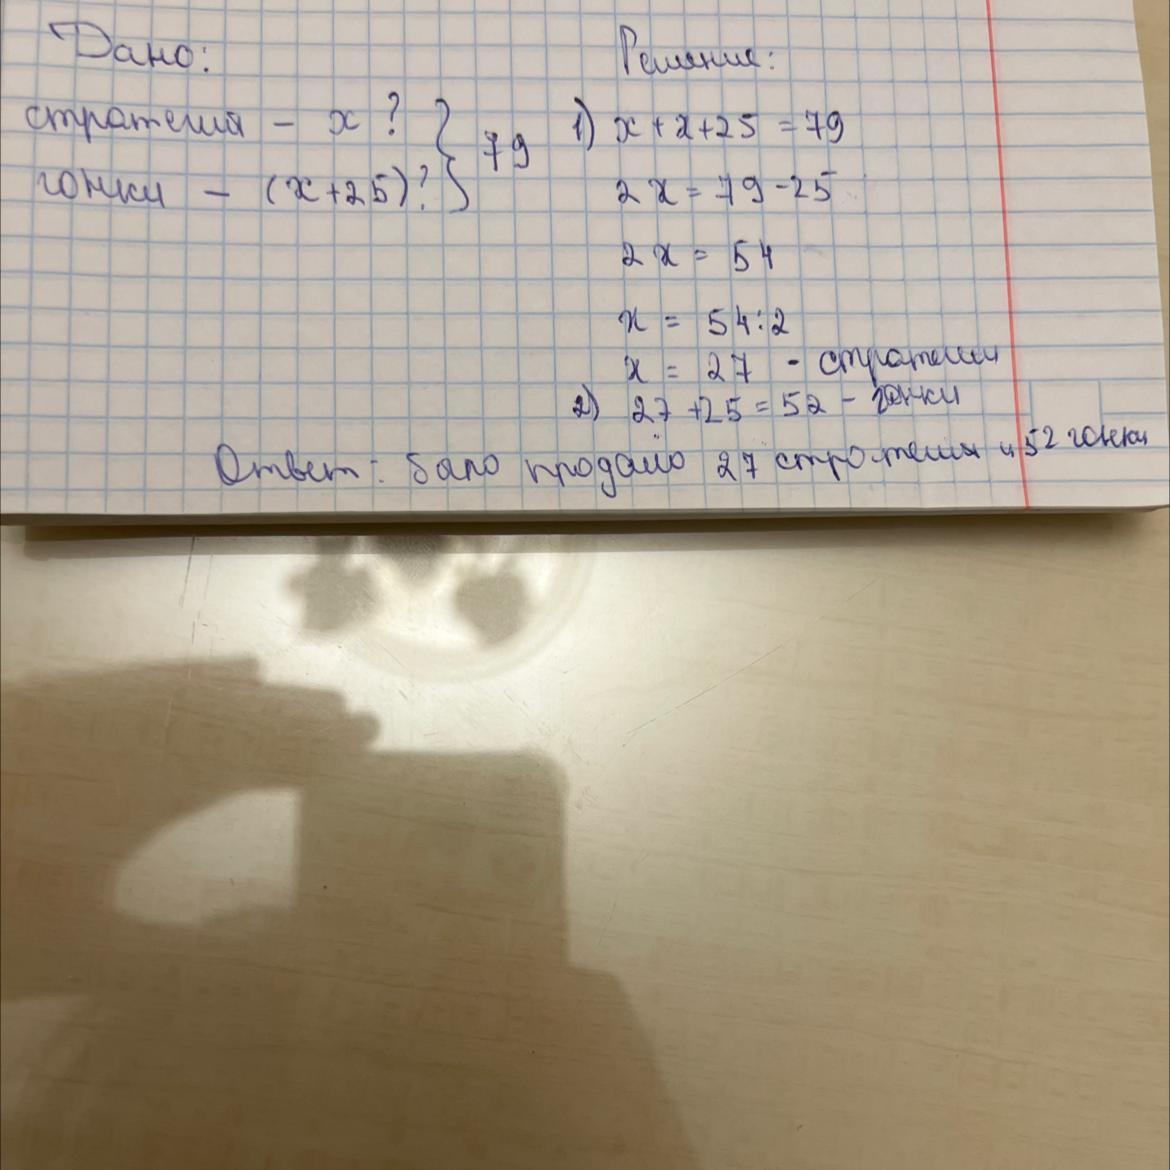 Дано:
стратегия - x ? } 79
гонки - (x+25)?
Решение:
1) x+x+25 = 79
2x = 79-25
2x = 54
x = 54:2
x = 27 - стратегии
2) 27+25=52 - гонки
Ответ: было продано 27 стратегия и 52 гонки